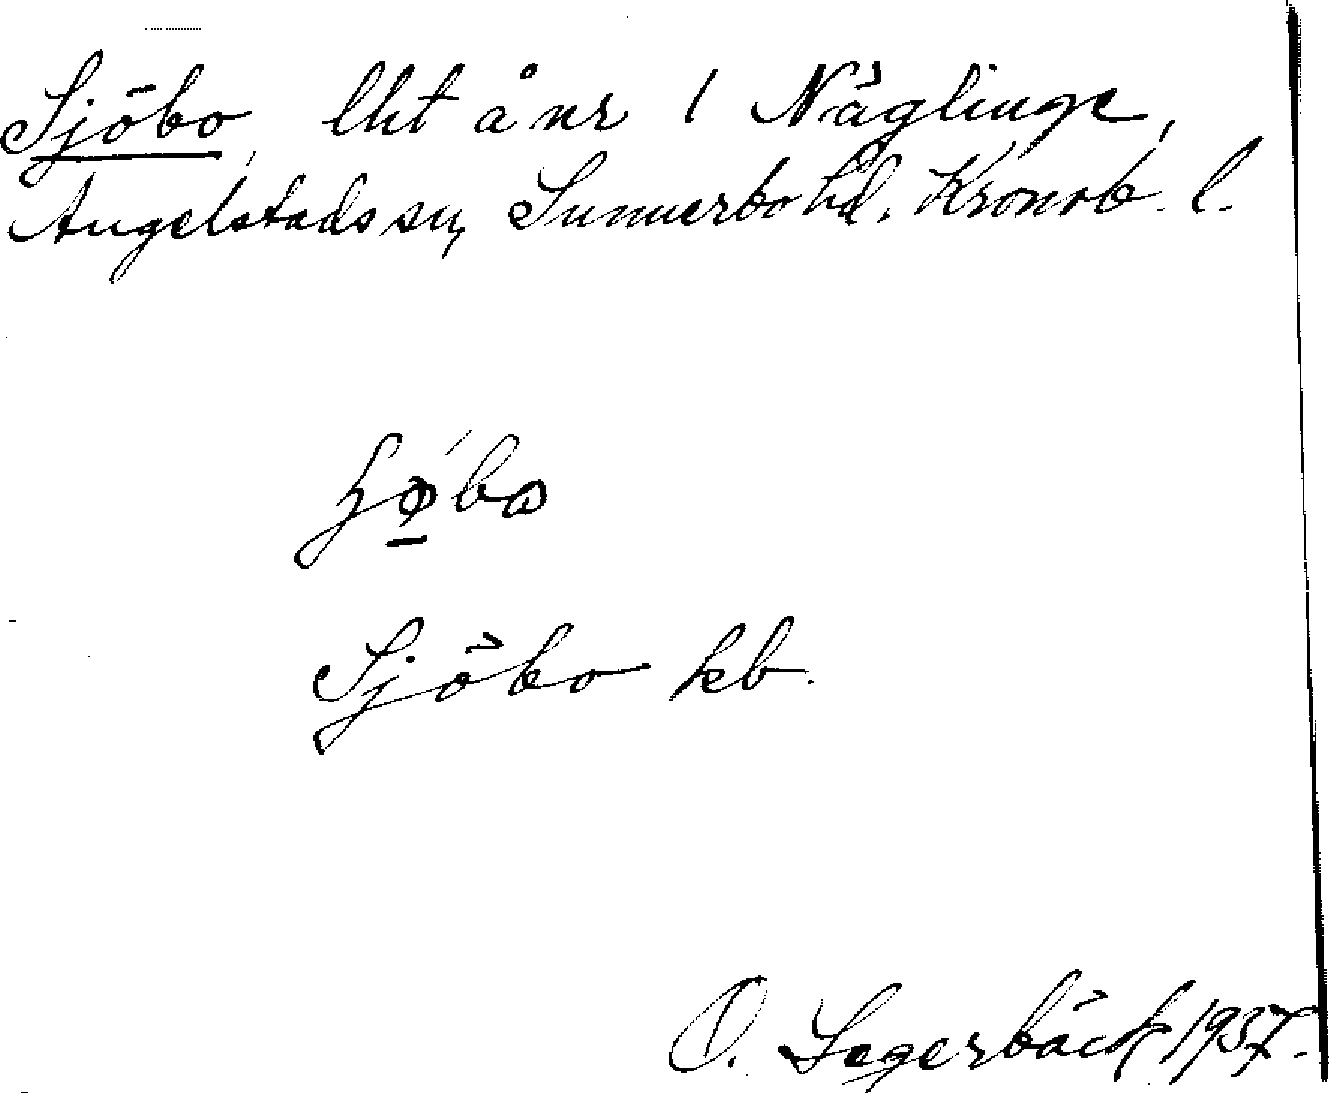 Sjöbo, lht å nr 1 Näglinge,
Angelstads sn, Sunnerbo hd, Kronob. l.
Sjöbo kb.
O. Segerbäck 1937.